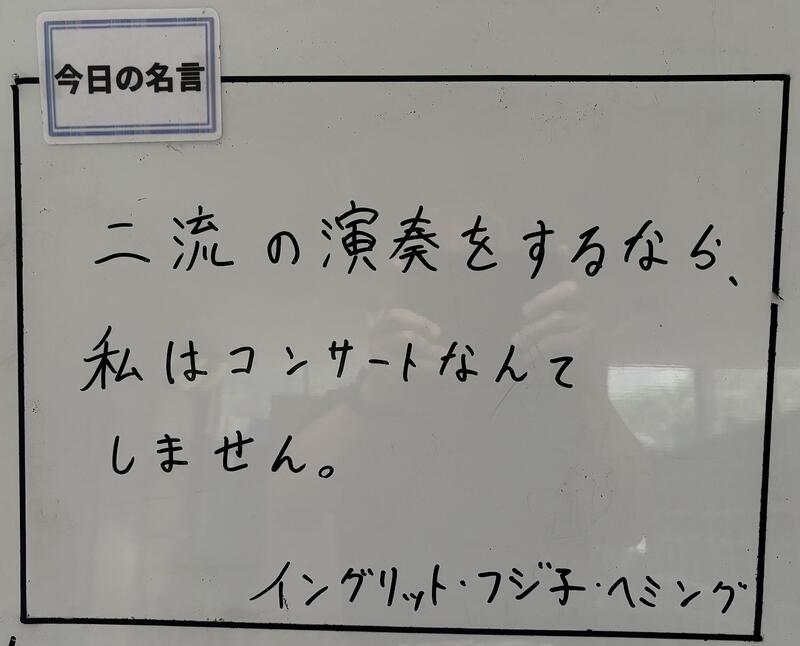 今日の名言
二流の演奏をするなら、
私はコンサートなんて
しません。
イングリット・フジ子・ヘミング